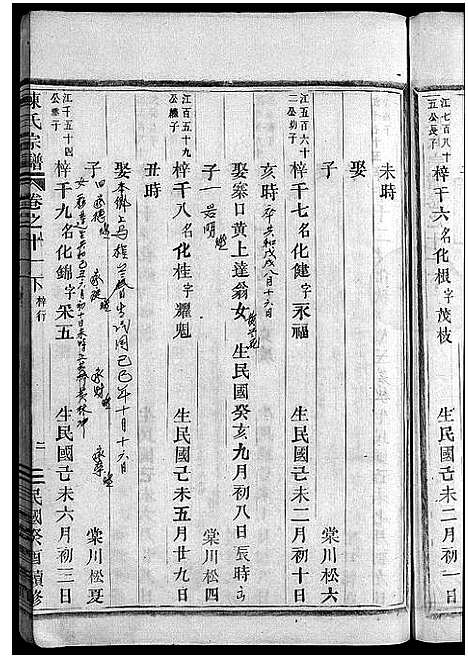 江七百八十
五公長子
梓千六名化根字茂枝 生民國己未二月初一日
未時
娶
子 棠川松六
江五百六十
二公幼子
梓千七名化健字永福 生民國己未二月初十日
亥時 卒共和戊戌八月十六日
娶寨口黄上達翁女 生民國癸亥九月初八日辰時
子一 棠川松四
江百五十九
公繼子
梓千八名化桂字耀魁 生民國己未五月廿九日
丑時
娶 本鄉上馬 民國己巳年十月十六日
子四 棠川松夏
江千五十四
公繼子
梓千九名化錦字采五 生民國己未六月初三日
陳氏宗譜 卷之十一下 梓行 二 民國癸酉續修